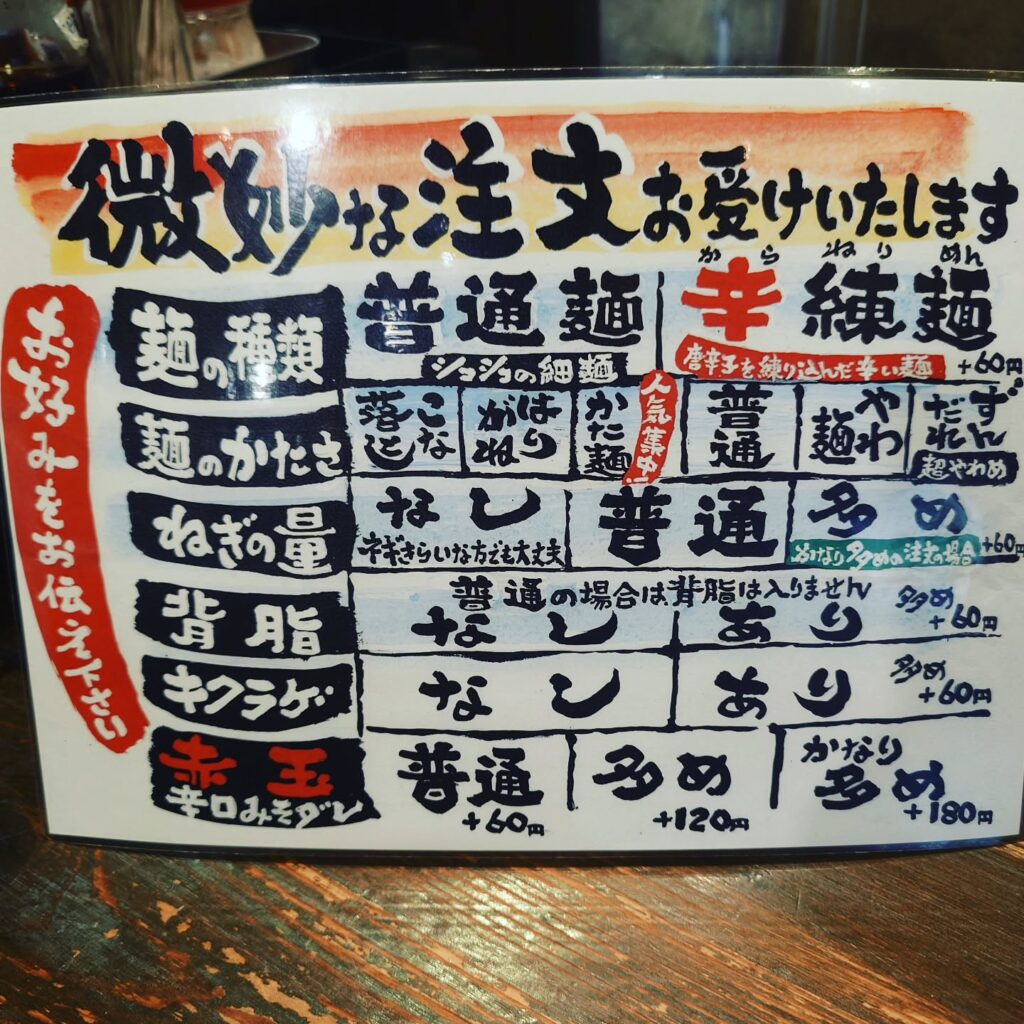 微妙な注文お受けいたします
お好みをお伝え下さい
麺の種類
普通麺
ショショの細麺
からねりめん
辛練麺
唐辛子を練り込んだ辛い麺
+60円
麺のかたさ
こな落とし
はりがね
かた麺
人気集中!
普通
やわ麺
ずんだれ
超やわめ
ねぎの量
なし
ネギきらいな方でも大丈夫
普通
多め
かなり多めの注文の場合
+60円
背脂
普通の場合は背脂は入りません
なし
あり
多め
+60円
キクラゲ
なし
あり
多め
+60円
赤玉
辛口みそダレ
普通
+60円
多め
+120円
かなり
多め
+180円